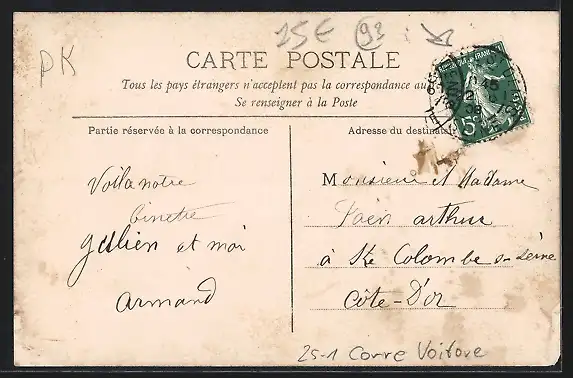 PK
25€
93
CARTE POSTALE
Tous les pays étrangers n'acceptent pas la correspondance au
Se renseigner à la Poste
Partie réservée à la correspondance
Adresse du destinat
Voila notre
binette
Julien et moi
Armand
Monsieur et Madame
arthur
à Ste Colombe s-seine
Côte-D'or
5c
25-1 Corre Voitore